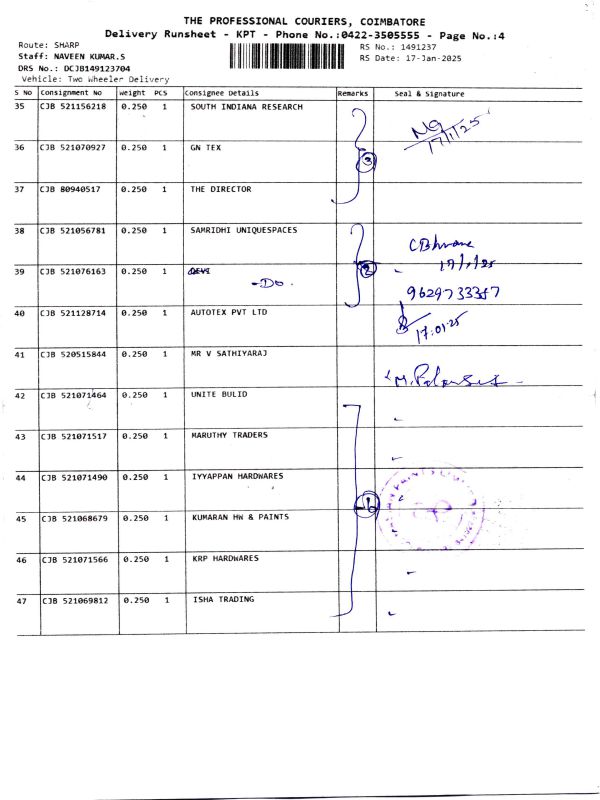 THE PROFESSIONAL COURIERS, COIMBATORE
Delivery Runsheet - KPT - Phone No.:0422-3505555 - Page No.:4
Route: SHARP
Staff: NAVEEN KUMAR.S
DRS No.: DCJB149123704
Vehicle: Two Wheeler Delivery
RS No.: 1491237
RS Date: 17-Jan-2025
S No Consignment No Weight PCS Consignee Details Remarks Seal & Signature
35 CJB 521156218 0.250 1 SOUTH INDIANA RESEARCH
17/1/25
36 CJB 521070927 0.250 1 GN TEX
3
37 CJB 80940517 0.250 1 THE DIRECTOR
38 CJB 521056781 0.250 1 SAMRIDHI UNIQUESPACES
17/1/25
39 CJB 521076163 0.250 1 DEVI
-Do.
2
9629733357
40 CJB 521128714 0.250 1 AUTOTEX PVT LTD
17.01.25
41 CJB 520515844 0.250 1 MR V SATHIYARAJ
42 CJB 521071464 0.250 1 UNITE BULID
43 CJB 521071517 0.250 1 MARUTHY TRADERS
44 CJB 521071490 0.250 1 IYYAPPAN HARDWARES
45 CJB 521068679 0.250 1 KUMARAN HW & PAINTS
46 CJB 521071566 0.250 1 KRP HARDWARES
47 CJB 521069812 0.250 1 ISHA TRADING